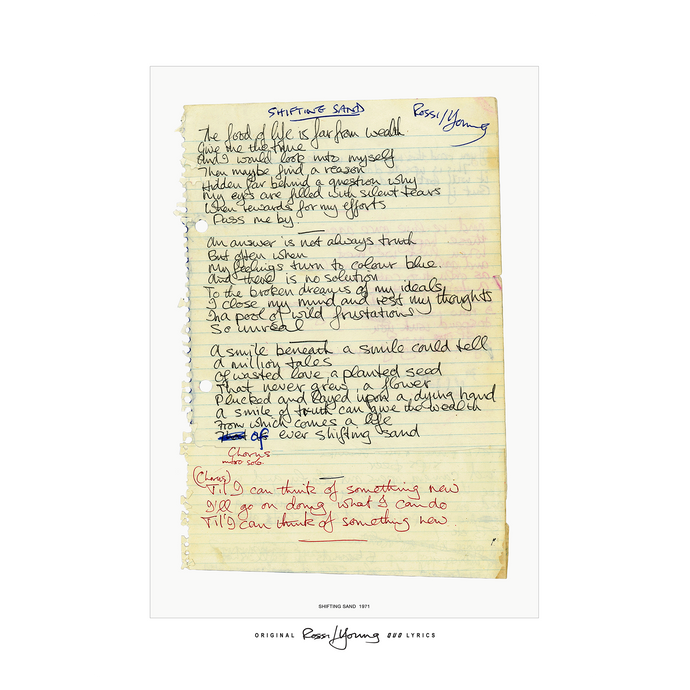 SHIFTING SAND Rossi/Young
The food of life is far from wealth.
Give me the time
And I would look into myself
Then maybe find a reason
Hidden far behind a question why
My eyes are filled with silent tears
When rewards for my efforts
Pass me by.
An answer is not always truth
But often when
My feelings turn to colour blue.
And there is no solution
To the broken dreams of my ideals,
I close my mind and rest my thoughts
In a pool of wild frustations
So unreal
A smile beneath a smile could tell
A million tales
Of wasted love, a planted seed
That never grew, a flower
Plucked and layed upon a dying hand
A smile of truth can give the wealth
From which comes a life
Of ever shifting sand
Chorus
into solo.
(Chorus)
Til' I can think of something new
I'll go on doing what I can do
Til' I can think of something new.
SHIFTING SAND 1971
ORIGINAL Rossi/Young QUO LYRICS